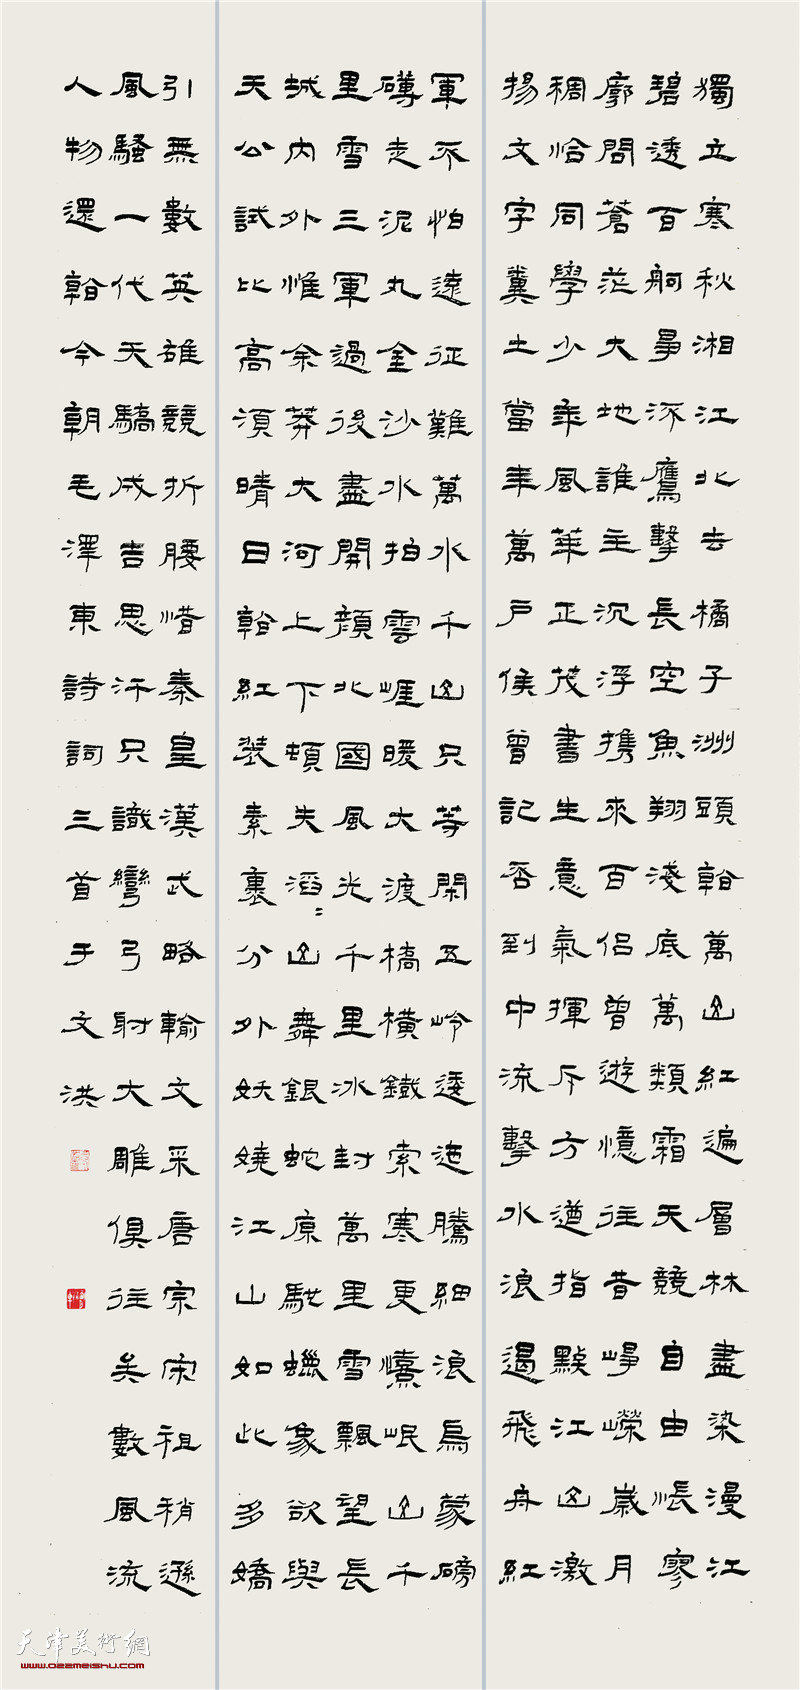 獨立寒秋湘江北去橘子洲頭看萬山紅遍層林盡染漫江
碧透百舸爭流鷹擊長空魚翔淺底萬類霜天競自由悵寥
廓問蒼茫大地誰主沉浮携來百侶曾遊憶往昔崢嶸歲月
稠恰同學少年風華正茂書生意氣揮斥方遒指點江山激
揚文字糞土當年萬戶侯曾記否到中流擊水浪遏飛舟紅
軍不怕遠征難萬水千山只等閑五岭逶迤騰細浪烏蒙磅
礴走泥丸金沙水拍雲崖暖大渡橋橫鐵索寒更憙岷山千
里雪三軍過後盡開顏北國風光千里冰封萬里雪飄望長
城內外惟余莽大河上下頓失滔〻山舞銀蛇原馳蠟象欲與
天公試比高須晴日看紅裝素裹分外妖嬈江山如此多嬌
引無數英雄競折腰惜秦皇漢武略輸文采唐宗宋祖稍遜
風騷一代天驕成吉思汗只識彎弓射大雕俱往矣數風流
人物還看今朝毛澤東詩詞三首于文洪
天津美術網
www.022meishu.com